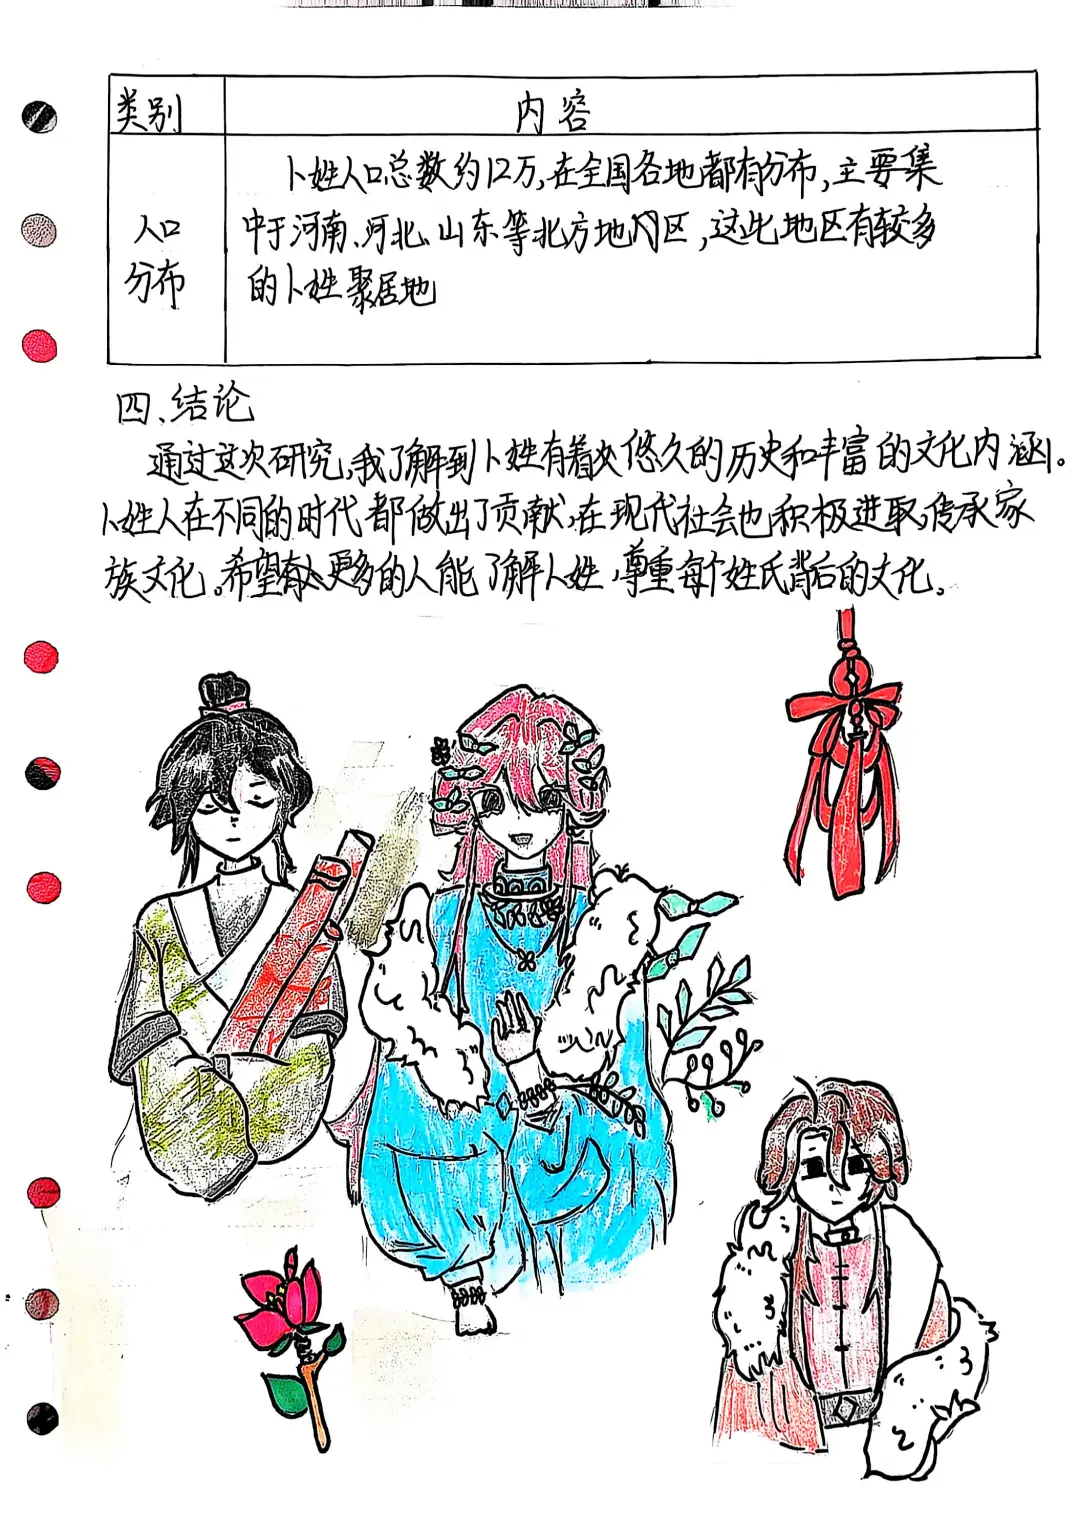 类别 内容
人口分布 卜姓人口总数约12万,在全国各地都有分布,主要集
中于河南、河北、山东等北方地区,这些地区有较多
的卜姓聚居地
四、结论
通过这次研究,我了解到卜姓有着悠久的历史和丰富的文化内涵。
卜姓人在不同的时代都做出了贡献,在现代社会也积极进取,传承家
族文化。希望有更多的人能了解卜姓,尊重每个姓氏背后的文化。